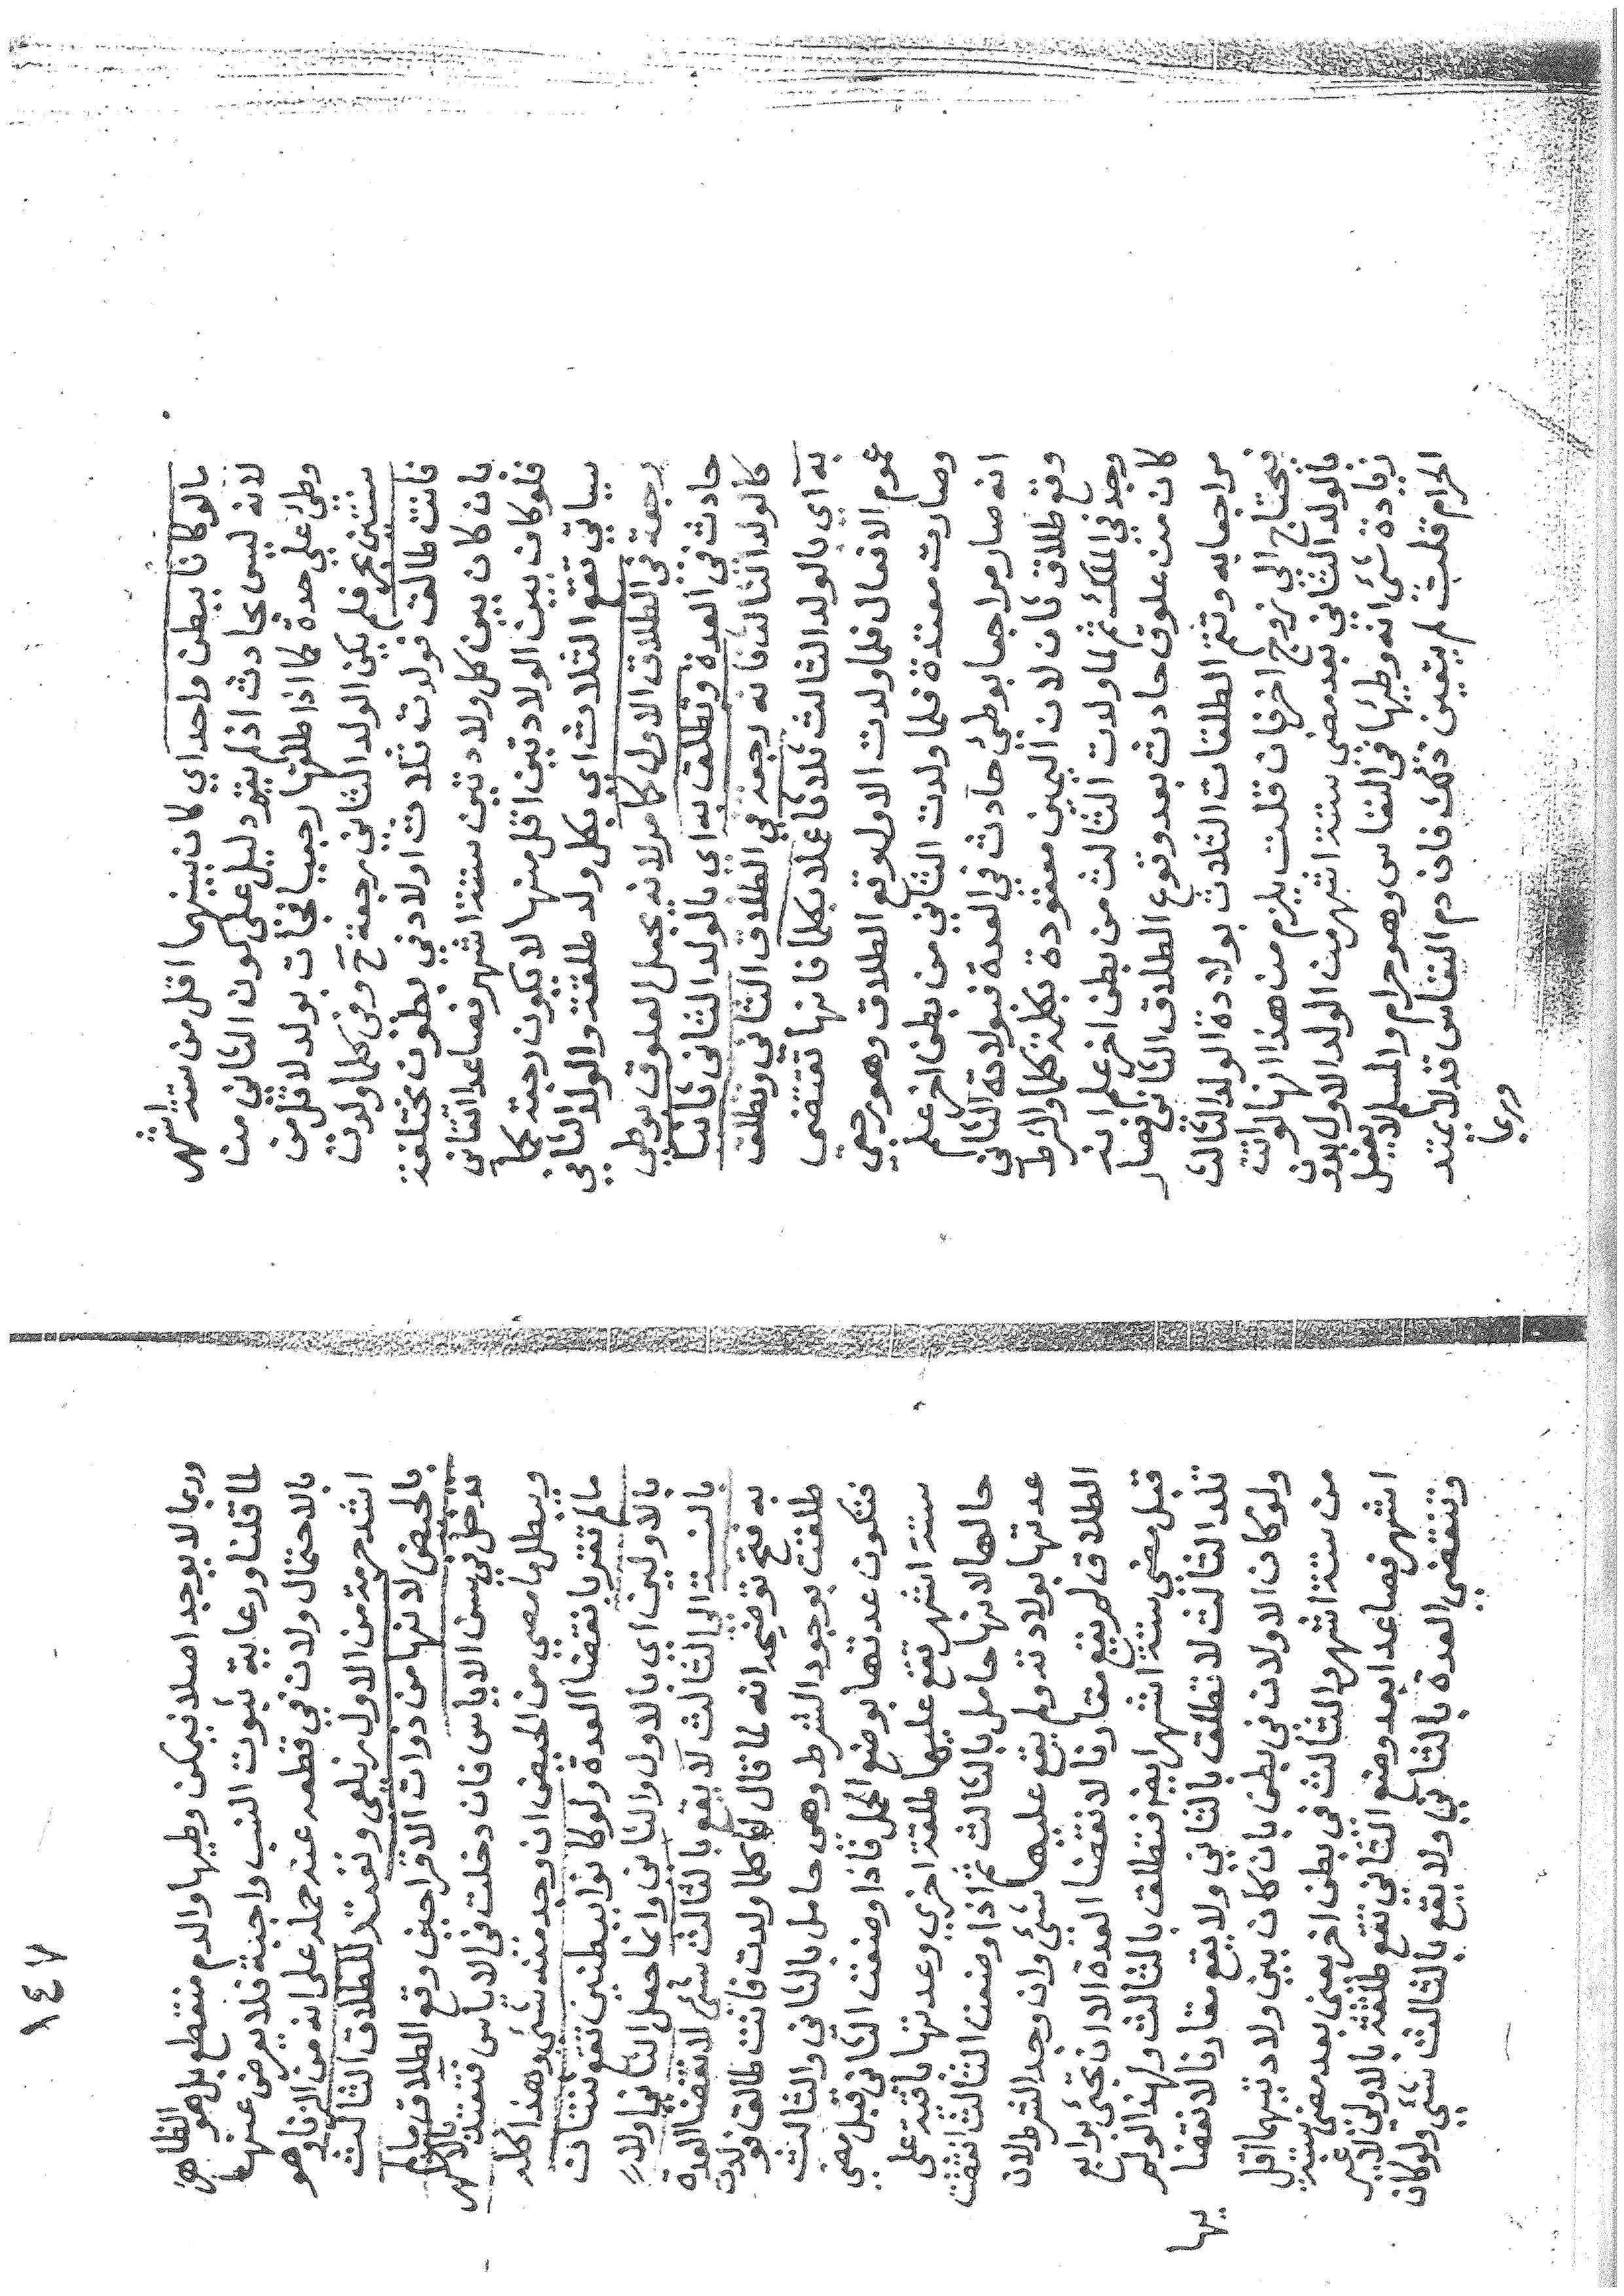 بالوكانا ببطن واحد اي كان بينهما اقل من ستة اشهر
لانه ليس بحادث اذ لم يقم دليل على كون الثاني من
وطئ على حدة كما اذا طلقها رجعيا فجات بولد لاقل من
سنتين بيوم فلم يكن الولد الثاني رجعة ح وفي كلما ولدت
فانت طالق فولدت ثلاث اولاد في بطون مختلفة
بان كان بين كل ولادتين ستة اشهر فصاعدا الثاني
فلو كان بين الولادتين اقل منها لا يكون رجعة كما
سياتي تقع الثلاث اي بكل ولد طلقة والولد الثاني
رجعة في الطلاق الاول كما مر لانه يجعل العلوق بوطي
حادث في العدة وتطلق به اي بالولد الثاني ثانيا
كالولد الثالث فانه رجعة في الطلاق الثاني وتطلق
به اي بالولد الثالث ثلاثا عملا بكلما فانها تقتضي
عموم الافعال فلما ولدت الاول وقع الطلاق وهو رجعي
وصارت معتدة فلما ولدت الثاني من بطن اخر علم
انه صار مراجعا بوطئ حادث في العدة فبولادة الثاني
وقع طلاق ثان لان اليمين معقودة بكلمة كلما والشرط
وجد في الملك ثم لما ولدت الثالث من بطن اخر علم انه
كان من علوق حادث بعد وقوع الطلاق الثاني فصار
مراجعا به وتتم الطلقات الثلاث بولادة الولد الثالث
فتحتاج الى زوج اخر فان قلت يلزم من هذا انها لو اتت
بالولد الثاني بعد مضي ستة اشهر من الولد الاول بدون
زيادة شئ انه وطيها في النفاس وهو حرام والمسلم لا يفعل
الحرام قلت لم يتعين ذلك فان دم النفاس قد لا يمتد
وربما
١٤٧
وربما لا يوجد اصلا فيمكن وطيها والدم منقطع بل هو الظاهر
لما قلنا ورعاية ثبوت النسب واجبة فلا يعرض عنها
بالاحتمال ولان في قطعه عنه حمله على انه من الزنا وهو
اشد حرمة من الاول زيلعي وتعتد للطلاق الثالث
بالحيض لانها من ذوات الاقراء حين وقع الطلاق ما لم
تدخل في سن الاياس فان دخلت في الاياس فتعتد بالاشهر
ويبطل ما مضى من الحيض ان وجد منه شئ وهذا كله
ما لم تقر بانقضا العدة ولو كانوا ببطن تقع ثنتان
بالاولين اي بالاول والثاني وانما حمل الثاني اولا
بالنسبة الى الثالث لا يقع بالثالث شئ لانقضا العدة
به فتح توضيحه انه لما قال كلما ولدت فانت طالق فولدت
طلقت بوجود الشرط وهي حامل بالثاني والثالث
فتكون عدتها بوضع الحمل فاذا وضعت الثاني قبل مضي
ستة اشهر تقع عليها طلقة اخرى وعدتها باقية على
حالها لانها حامل بالثالث ثم اذا وضعت الثالث انقضت
عدتها بولادته ولم يقع عليها شئ وان وجد الشرط لان
الطلاق لم يقع مقارنا لانقضا العدة الا ان تجئ برابع
قبل مضي ستة اشهر ايضا فتطلق بالثالث ولهذا لو لم
تلد الثالث لا تطلق بالثاني ولا يقع مقارنا لانقضا
ئها
ولو كان الاولان في بطن بان كان بين ولادتيهما اقل
من ستة اشهر والثالث في بطن اخر يعني بعد مضي ستة
اشهر فصاعدا بعد وضع الثاني تقع طلقة بالاول لا غير
وتنقضي العدة بالثاني ولا يقع بالثالث شئ ولو كان